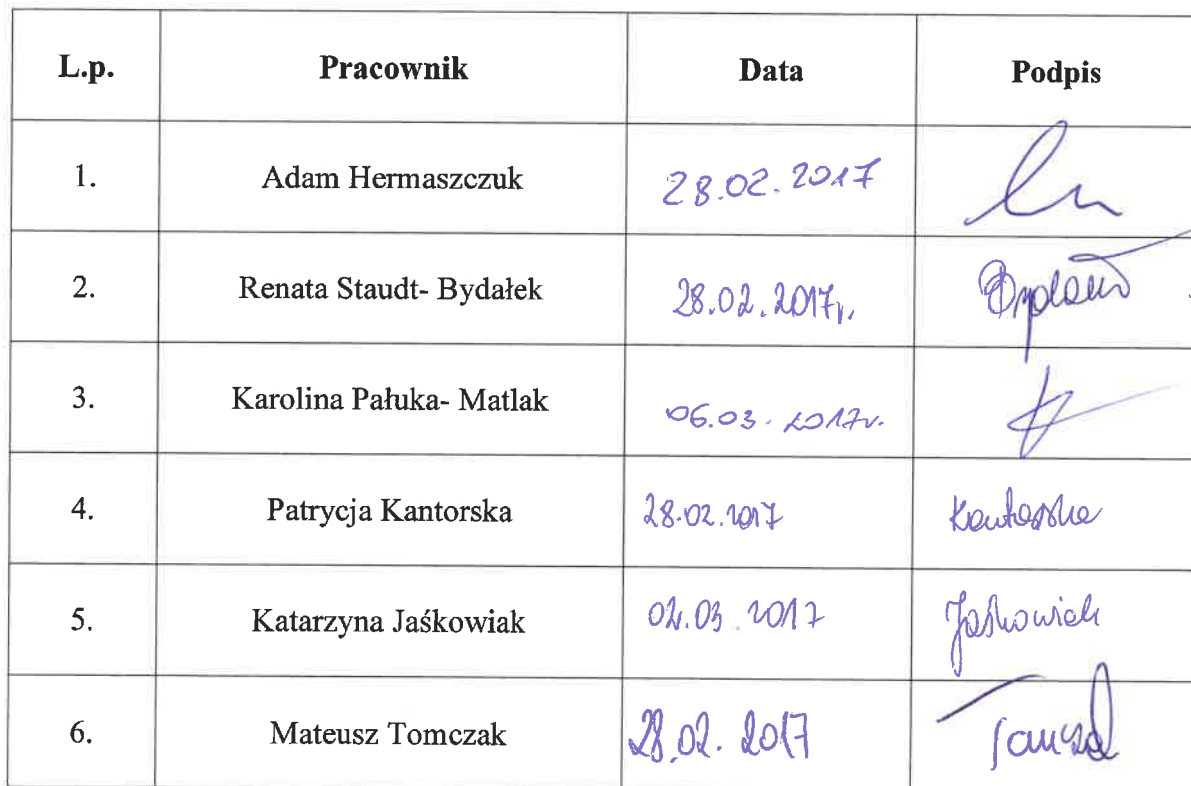 L.p. Pracownik Data Podpis
1. Adam Hermaszczuk 28.02.2017
2. Renata Staudt- Bydałek 28.02.2017r.
3. Karolina Pałuka- Matlak 06.03.2017r.
4. Patrycja Kantorska 28.02.2017 Kantorska
5. Katarzyna Jaśkowiak 02.03.2017 Jaśkowiak
6. Mateusz Tomczak 28.02.2017